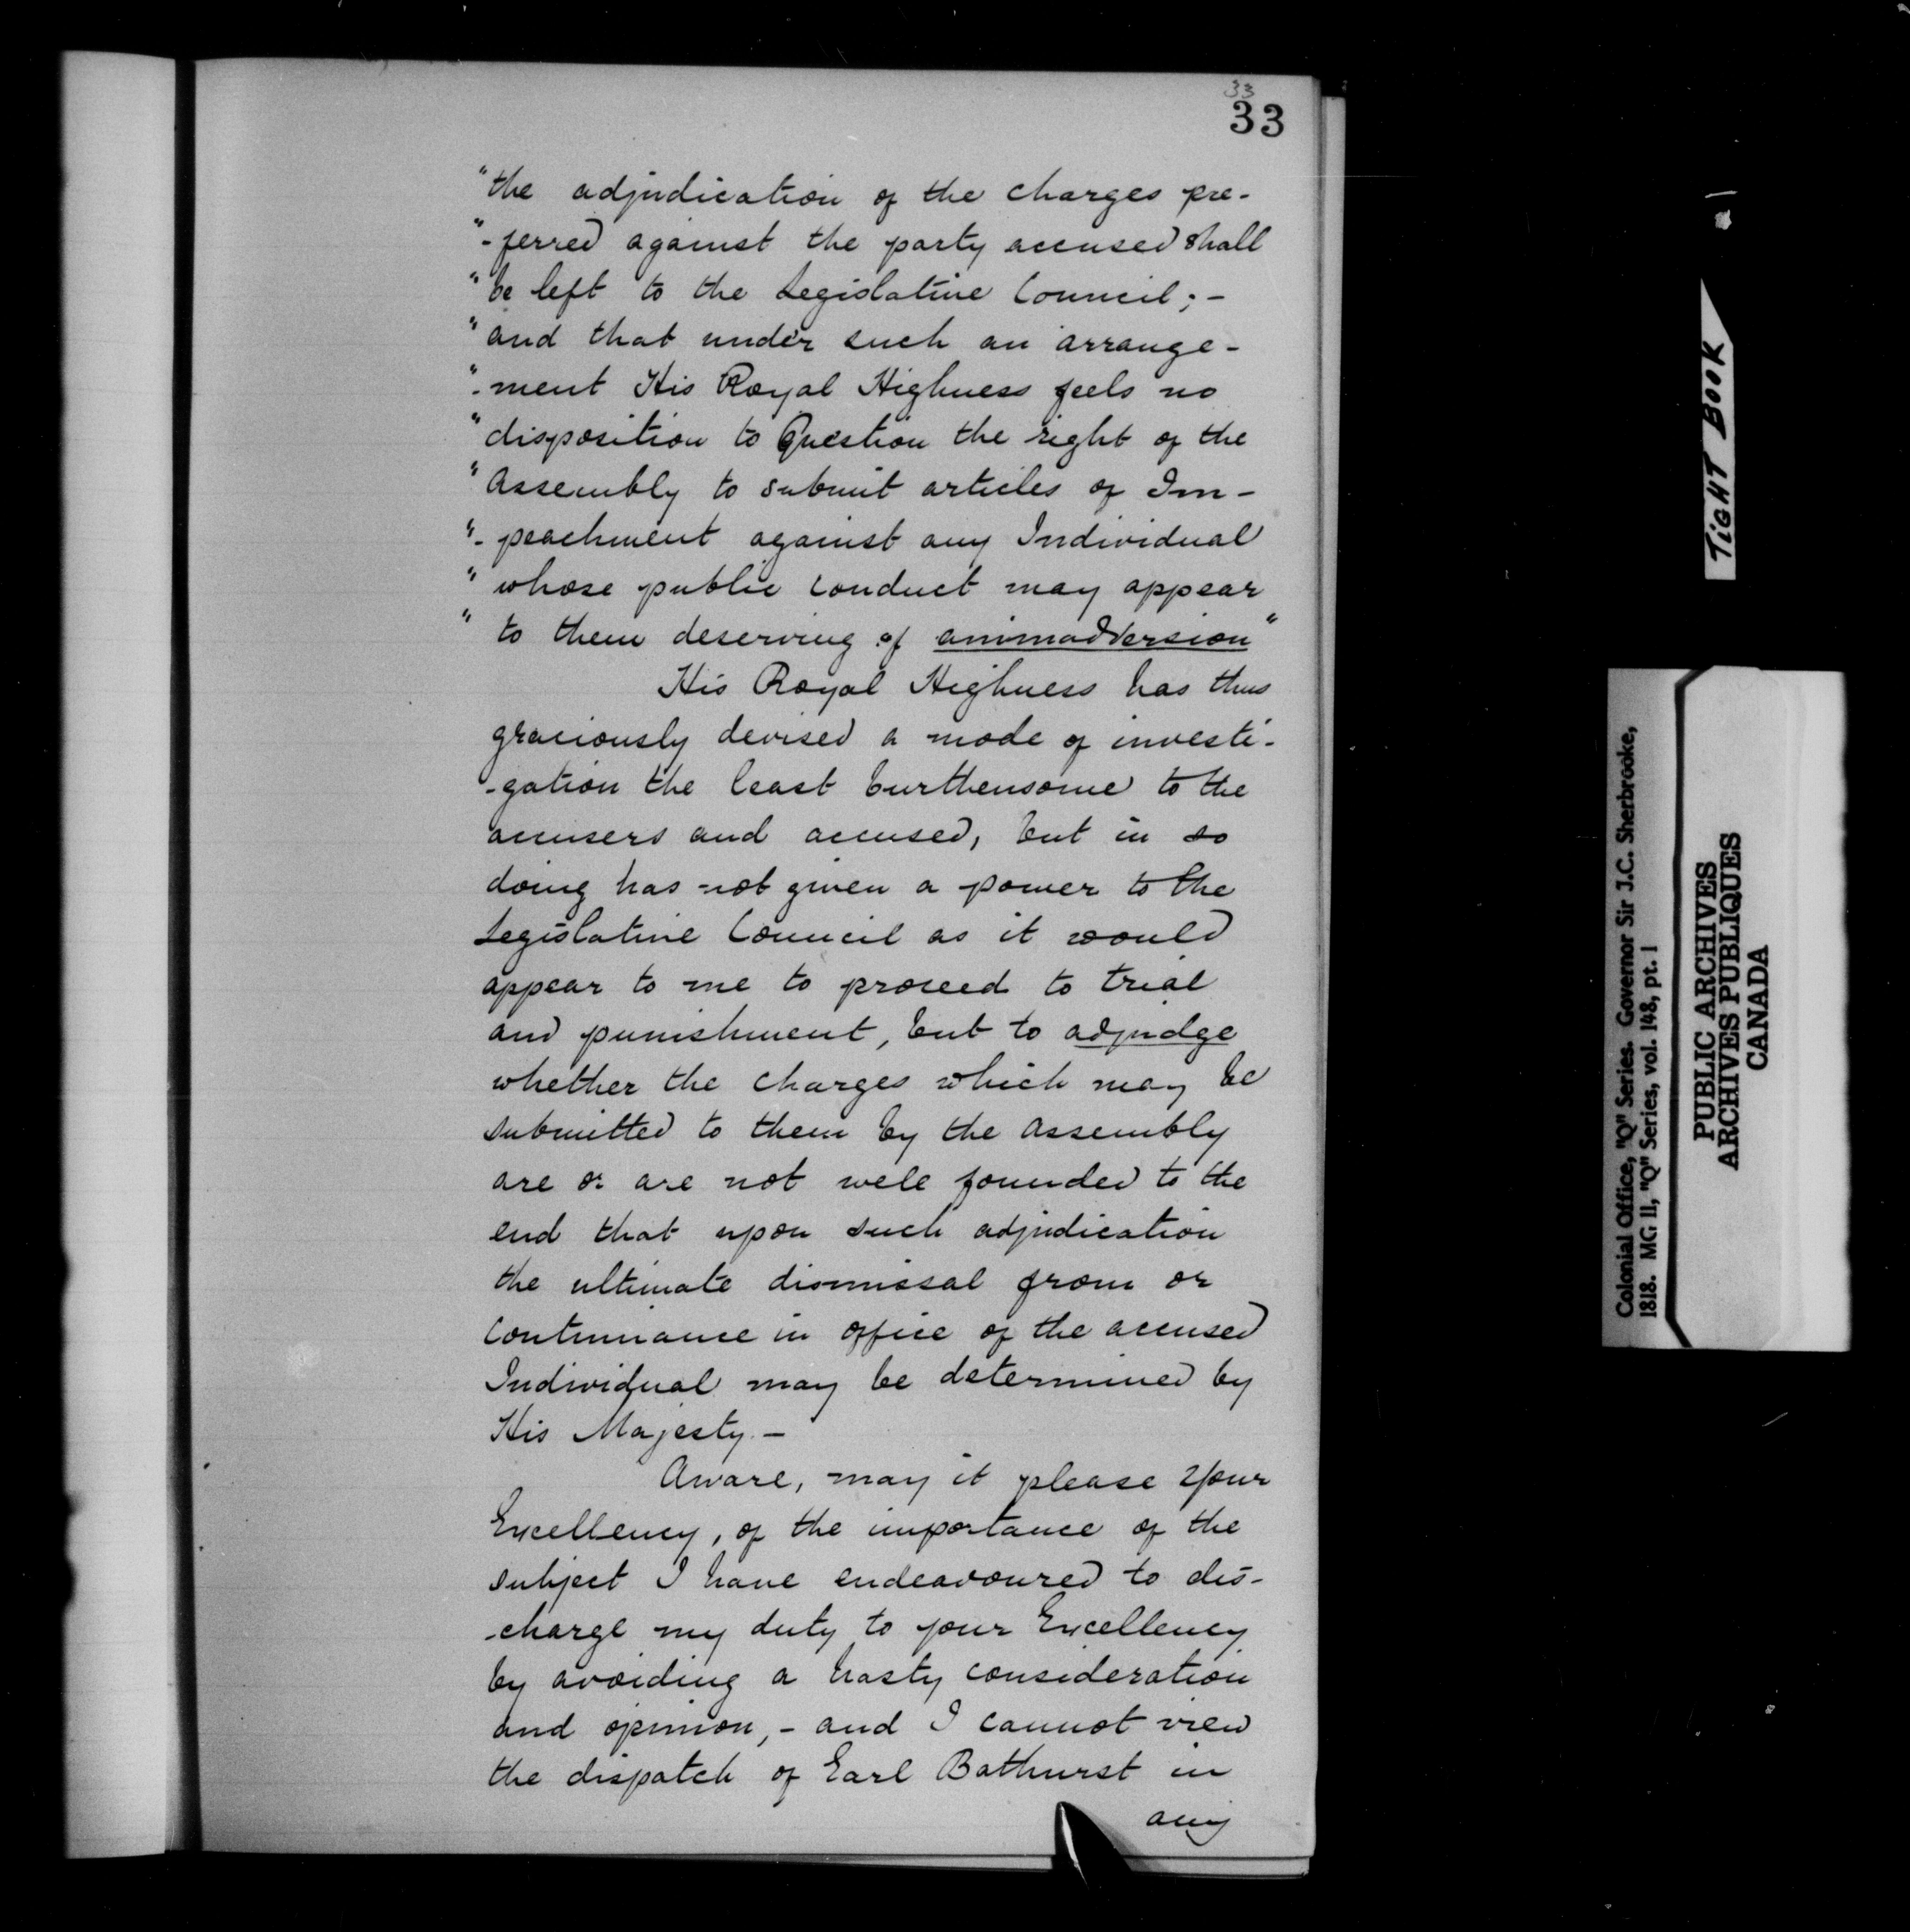 33
33
"the adjudication of the charges pre-
"-ferred against the party accused shall
"be left to the Legislative Council; -
"and that under such an arrange-
"-ment His Royal Highness feels no
"disposition to Question the right of the
"Assembly to submit articles of Im-
"-peachment against any Individual
"whose public conduct may appear
"to them deserving of animadversion"
His Royal Highness has thus
graciously devised a mode of investi-
-gation the least burthensome to the
accusers and accused, but in so
doing has not given a power to the
Legislative Council as it would
appear to me to proceed to trial
and punishment, but to adjudge
whether the charges which may be
submitted to them by the Assembly
are or are not well founded to the
end that upon such adjudication
the ultimate dismissal from or
continuance in office of the accused
Individual may be determined by
His Majesty. -
Aware, may it please Your
Excellency, of the importance of the
subject I have endeavoured to dis-
-charge my duty to your Excellency
by avoiding a hasty consideration
and opinion, - and I cannot view
the dispatch of Earl Bathurst in
any
TIGHT BOOK
Colonial Office, "Q" Series. Governor Sir J.C. Sherbrooke,
1818. MG 11, "Q" Series, vol. 148, pt. 1
PUBLIC ARCHIVES
ARCHIVES PUBLIQUES
CANADA